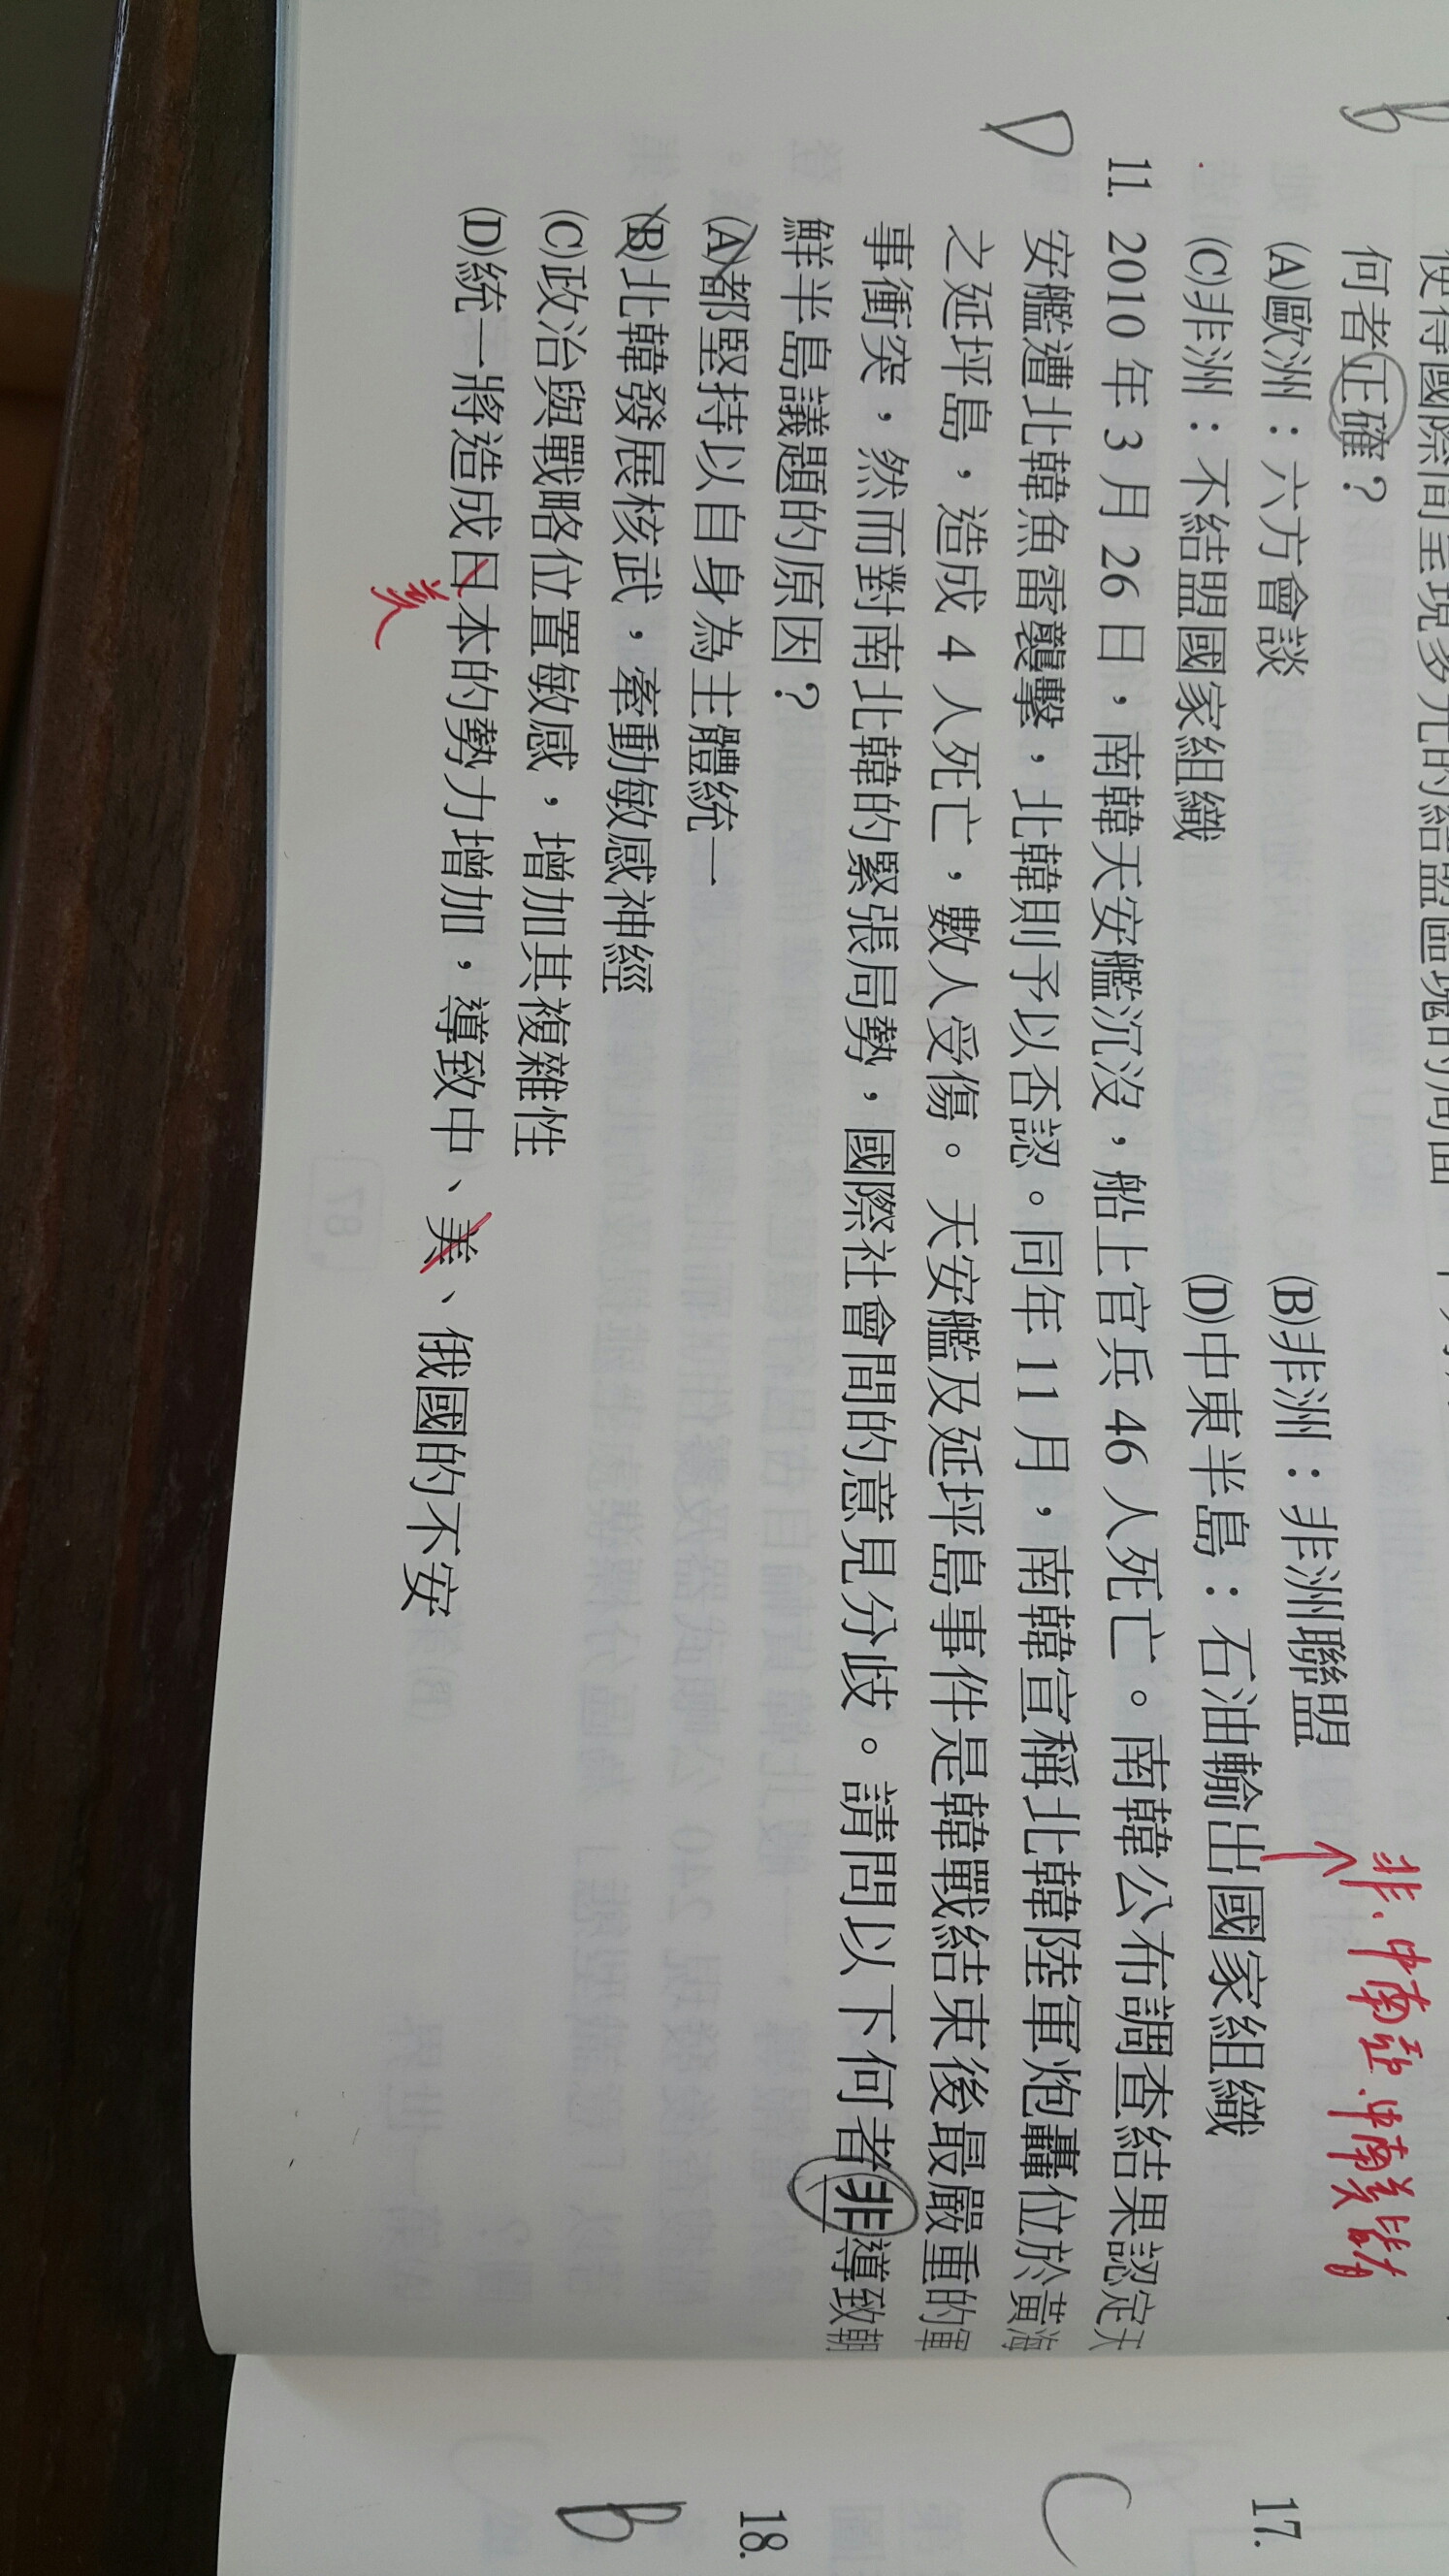 何者正確？
(A)歐洲：六方會談
(B)非洲：非洲聯盟
非、中南亞、中南美皆有
(C)非洲：不結盟國家組織
(D)中東半島：石油輸出國家組織
D
11. 2010 年 3 月 26 日，南韓天安艦沉沒，船上官兵 46 人死亡。南韓公布調查結果認定天
安艦遭北韓魚雷襲擊，北韓則予以否認。同年 11 月，南韓宣稱北韓陸軍炮轟位於黃海
之延坪島，造成 4 人死亡，數人受傷。天安艦及延坪島事件是韓戰結束後最嚴重的軍
事衝突，然而對南北韓的緊張局勢，國際社會間的意見分歧。請問以下何者非導致朝
鮮半島議題的原因？
(A)都堅持以自身為主體統一
(B)北韓發展核武，牽動敏感神經
(C)政治與戰略位置敏感，增加其複雜性
(D)統一將造成日本的勢力增加，導致中、美、俄國的不安
美
17.
C
18.
B